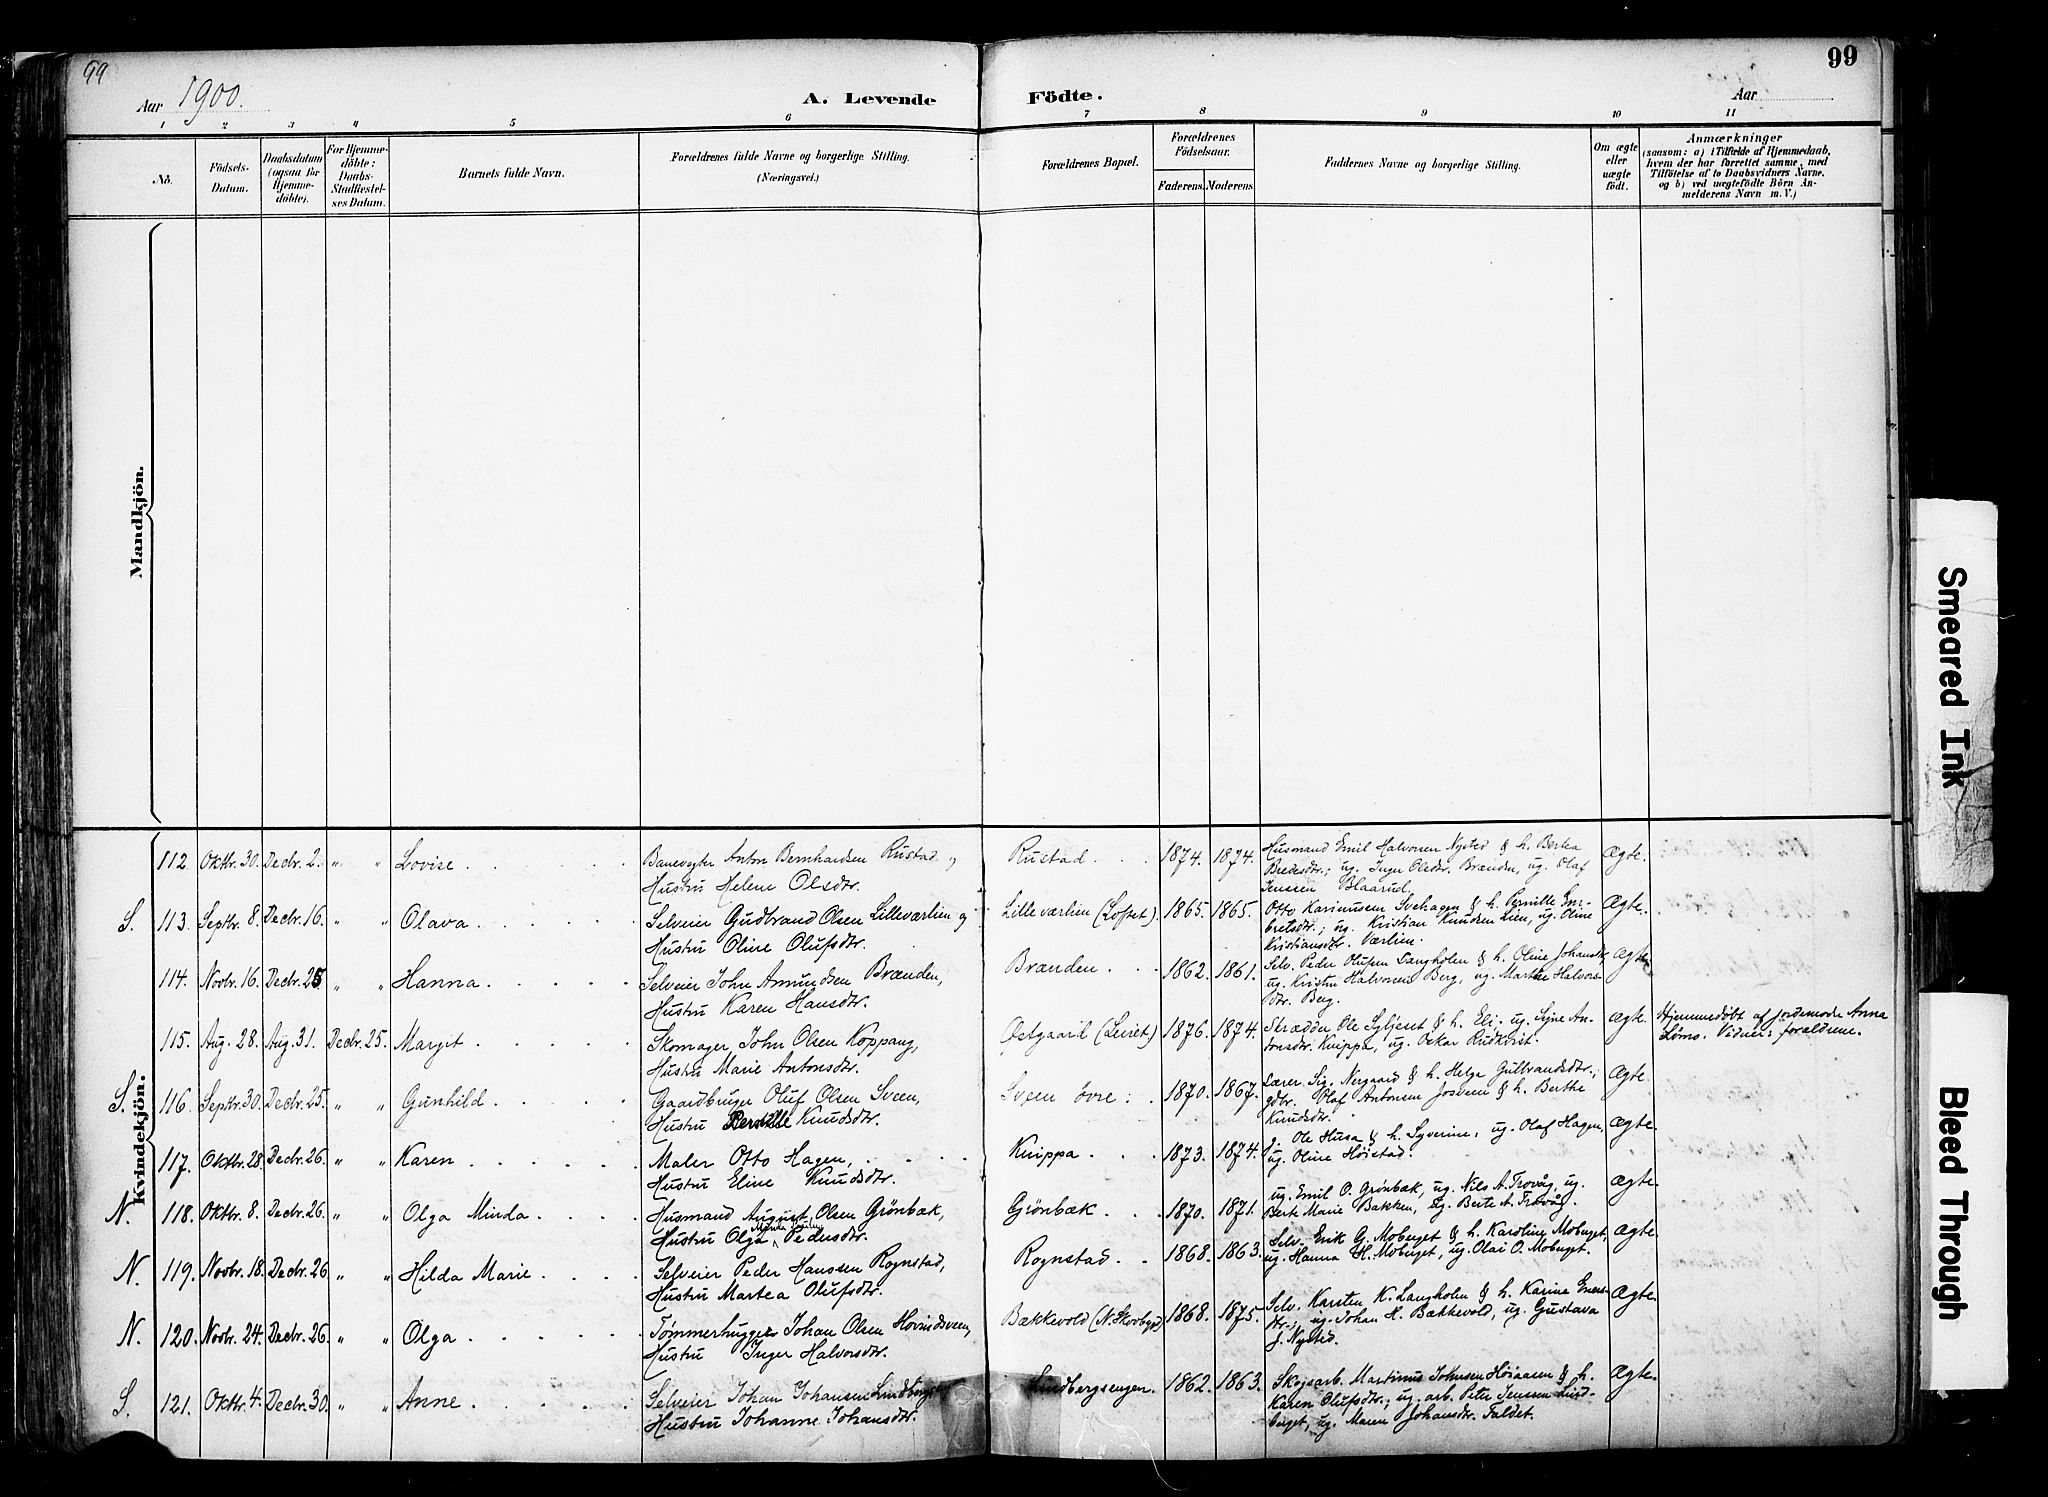 99
99
Aar 1900.
A. Levende Födte.
Aar
1 2 3 4 5 6 7 8 9 10 11
No.
Födsels-Datum.
Daabsdatum (ogsaa for Hjemme-döbte).
For Hjemme-döbte: Daabs-Stadfæstel-ses Datum.
Barnets fulde Navn.
Forældrenes fulde Navne og borgerlige Stilling. (Næringsvei.)
Forældrenes Bopæl.
Forældrenes Födselsaar.
Faderens. Moderens.
Faddernes Navne og borgerlige Stilling.
Om ægte eller uægte födt.
Anmærkninger
(saasom: a) i Tilfælde af Hjemmedaab, hvem der har forrettet samme, med Tilföielse af to Daabsvidners Navne, og b) ved uægtefödte Börn An-melderens Navn m. V.)
Mandkjön.
Kvindekjön.
112. Oktbr. 30. Decbr. 2. " " Lovise
Banevogter Anton Bernhardsen Rustad og
Hustru Helene Olsdtr.
Rustad 1874. 1874.
Husmand Emil Halvorsen Nysted & h. Berthea
Bredesdtr.; ug. Inger Olsdtr. Brænden, ug. Olaf
Jenssen Blaarud.
Ægte.
S. 113. Septbr. 8. Decbr. 16. " " Olava
Selveier Gudbrand Olsen Lilleværlien og
Hustru Oline Olufsdtr.
Lilleværlien (Loftet). 1865. 1865.
Otto Karinusen Svehagen & h. Pernille Em-
bretsdtr.; ug. Kristian Knudsen Lien, ug. Oline
Kristiansdtr. Værlien.
Ægte.
114. Novbr. 16. Decbr. 25. " " Hanna
Selveier John Amundsen Brænden,
Hustru Karen Hansdtr.
Brænden 1862. 1861.
Selv. Peder Olufsen Langholen & h. Oline Johansdtr.
ug. Kristin Halvorsen Berg, ug. Marthe Halvors-
dtr. Berg.
Ægte.
115. Aug. 28. Aug. 31. Decbr. 25. Margit
Skomager John Olsen Koppang,
Hustru Marie Antonsdtr.
Østgaard (Leiret). 1876. 1874.
Skrædder Ole Syljeset & h. Eli, ug. Signe An-
tonsdtr. Knippa, ug. Oskar Rudkvist.
Ægte.
Hjemmedøbt af jordemoder Anna
Løms. Vidner: forældrene.
S. 116. Septbr. 30. Decbr. 25. " " Gunhild
Gaardbruger Oluf Olsen Sveen,
Hustru Pernille Knudsdtr.
Sveen øvre 1870. 1867.
Lærer Sig. Nergaard & h. Helga Gulbrandsdtr.;
gdbr. Olaf Antonsen Josveen & h. Berthe
Knudsdtr.
Ægte.
117. Oktbr. 28. Decbr. 26. " " Karen
Maler Otto Hagen,
Hustru Eline Knudsdtr.
Knippa 1873. 1874.
Ole Husa & h. Syverine, ug. Olaf Hagen,
ug. Oline Høistad.
Ægte.
N. 118. Oktbr. 8. Decbr. 26. " " Olga Minda
Husmand August Olsen Grönbæk,
Hustru Olga Pedersdtr.
Grönbæk 1870. 1871.
ug. Emil O. Grønbæk, ug. Nils A. Trovåg, ug.
Berte Marie Bakken, ug. Berte A. Trovåg.
Ægte.
N. 119. Novbr. 18. Decbr. 26 " " Hilda Marie
Selveier Peder Hanssen Rognstad,
Hustru Martea Olufsdtr.
Rognstad 1868. 1863.
Selv. Erik G. Moberget & h. Karoline Moberget,
ug. Hanna H. Moberget, ug. Olai O. Moberget.
Ægte.
N. 120. Novbr. 24. Decbr. 26. " " Olga
Tømmerhugger Johan Olsen Hovindsveen,
Hustru Inger Halvorsdtr.
Bækkevold (N. Skovbygd) 1868. 1875.
Selv. Karsten K. Langholen & h. Karine Eners-
dtr.; ug. Johan H. Bækkevold, ug. Gustava
J. Nysted.
Ægte.
S. 121. Oktbr. 4. Decbr. 30. " " Anne
Selveier Johan Johansen Lindbergs
Hustru Johanne Johansdtr.
Lindbergsengen. 1862. 1863.
Skogsarb. Martinus Johnsen Høiaasen & h.
Karen Olufsdtr.; ug. arb. Peter Jenssen Lind-
berget, ug. Maren Johansdtr. Faldet.
Ægte.
Smeared Ink
Bleed Through